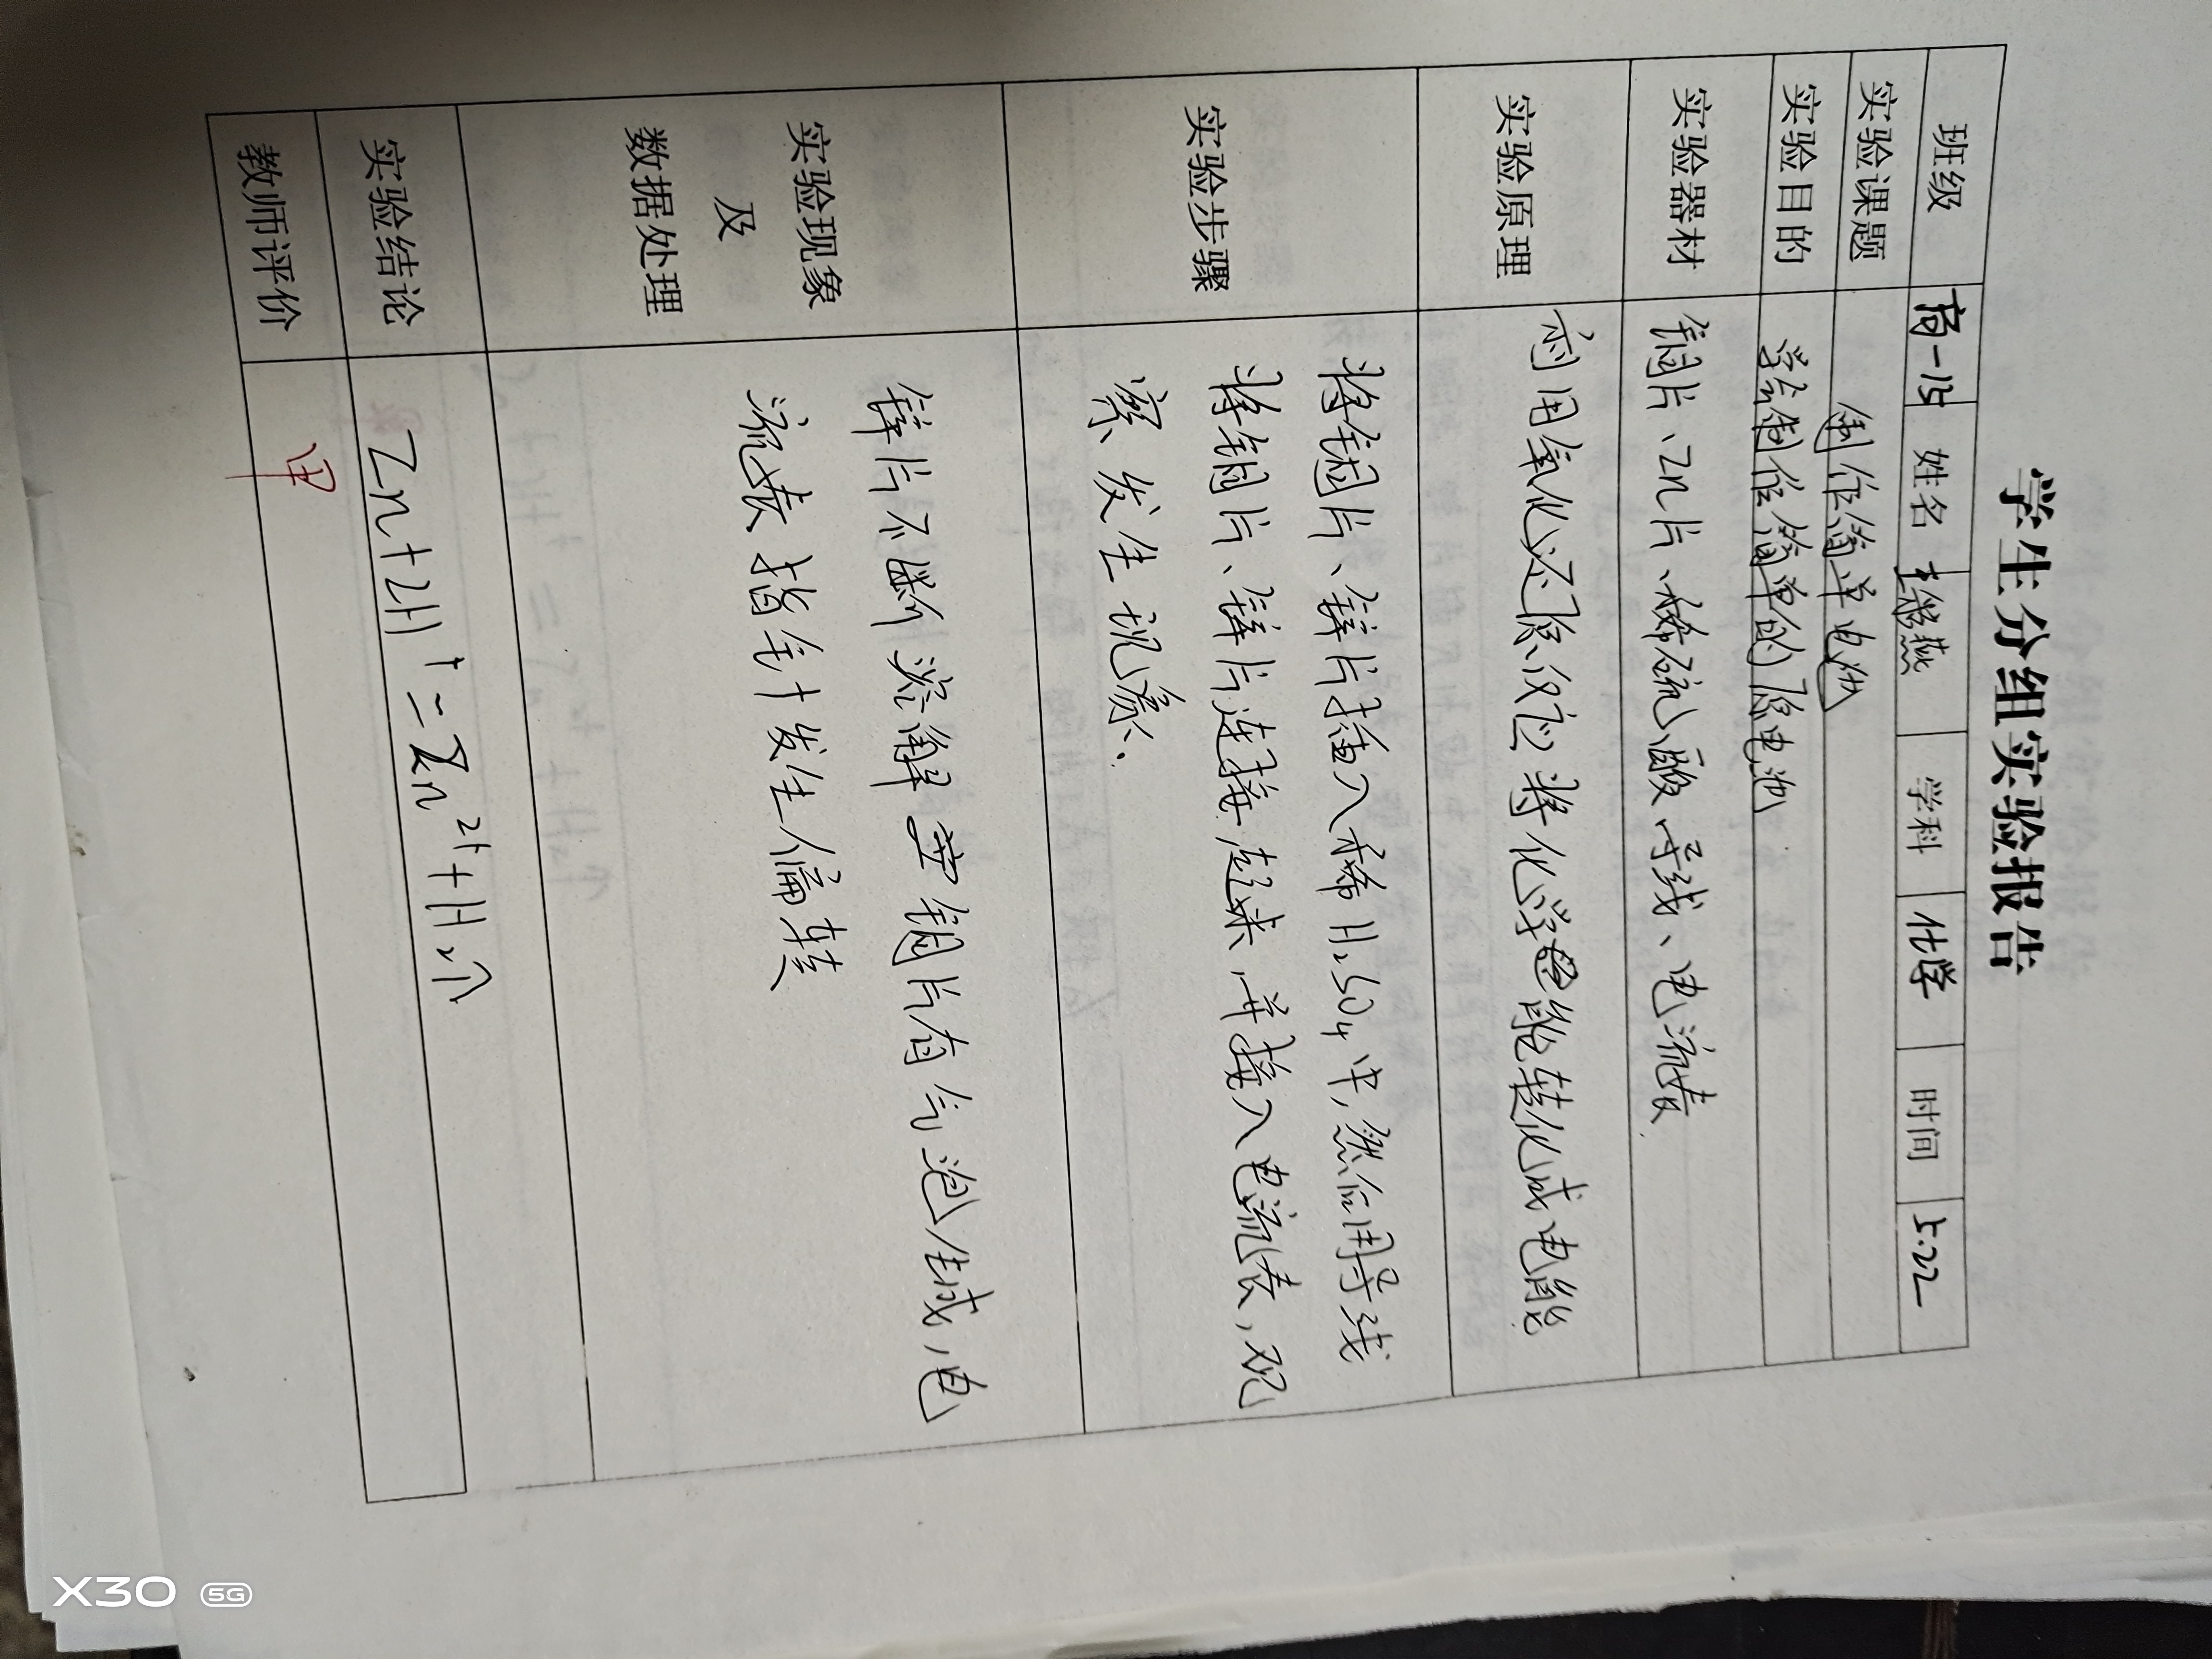 学生分组实验报告
班级 高一15 姓名 学科 化学 时间 5.22
实验课题 制作简单电池
实验目的 学会制作简单的原电池
实验器材 铜片、Zn片、稀硫酸、导线、电流表.
实验原理 利用氧化还原反应将化学能转化成电能
实验步骤
将铜片、锌片插入稀H₂SO₄中,然后用导线
将铜片、锌片连接起来,并接入电流表,观
察发生现象.
实验现象
及
数据处理
锌片不断溶解 铜片有气泡生成,电
流表指针发生偏转
实验结论 Zn+2H⁺=Zn²⁺+H₂↑
教师评价 甲
X30 5G